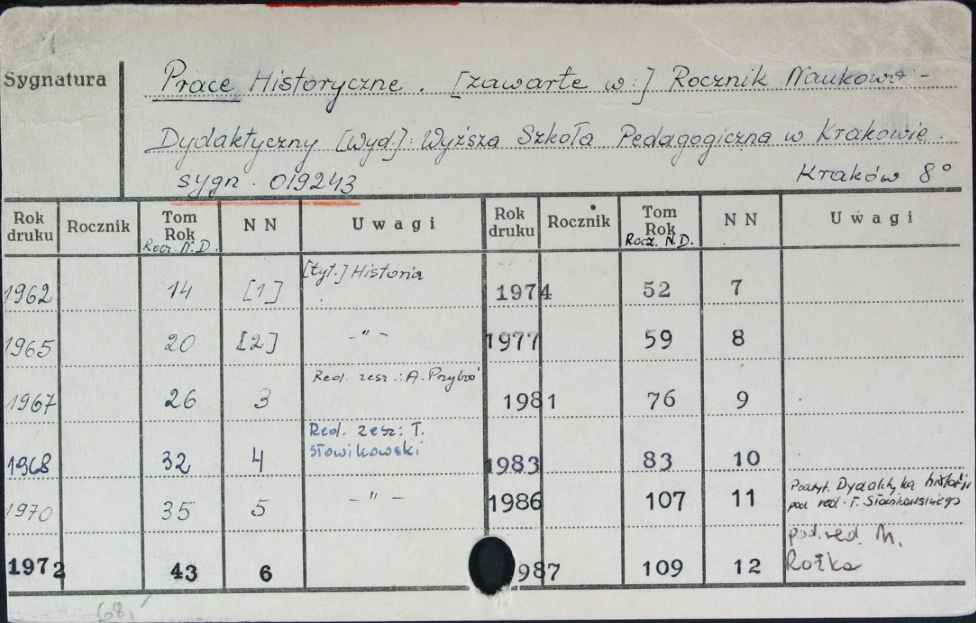 Sygnatura
Prace Historyczne. [zawarte w:] Rocznik Naukowo-
Dydaktyczny [Wyd]: Wyższa Szkoła Pedagogiczna w Krakowie.
sygn. 019243 Kraków 8°
Rok druku Rocznik Tom Rok Rocz. N.D. NN Uwagi Rok druku Rocznik Tom Rok Rocz. N.D. NN Uwagi
1962 14 [1] [tyt.] Historia 1974 52 7
1965 20 [2] -"- 1977 59 8
1967 26 3 Red. zesz.: A. 1981 76 9
1968 32 4 Red. zesz: T. Słowikowski 1983 83 10
1970 35 5 -"- 1986 107 11 Podtyt. Dydaktyka historii pod red. T. Słowikowskiego
1972 43 6 1987 109 12 pod. red. M. Rożka
(68)